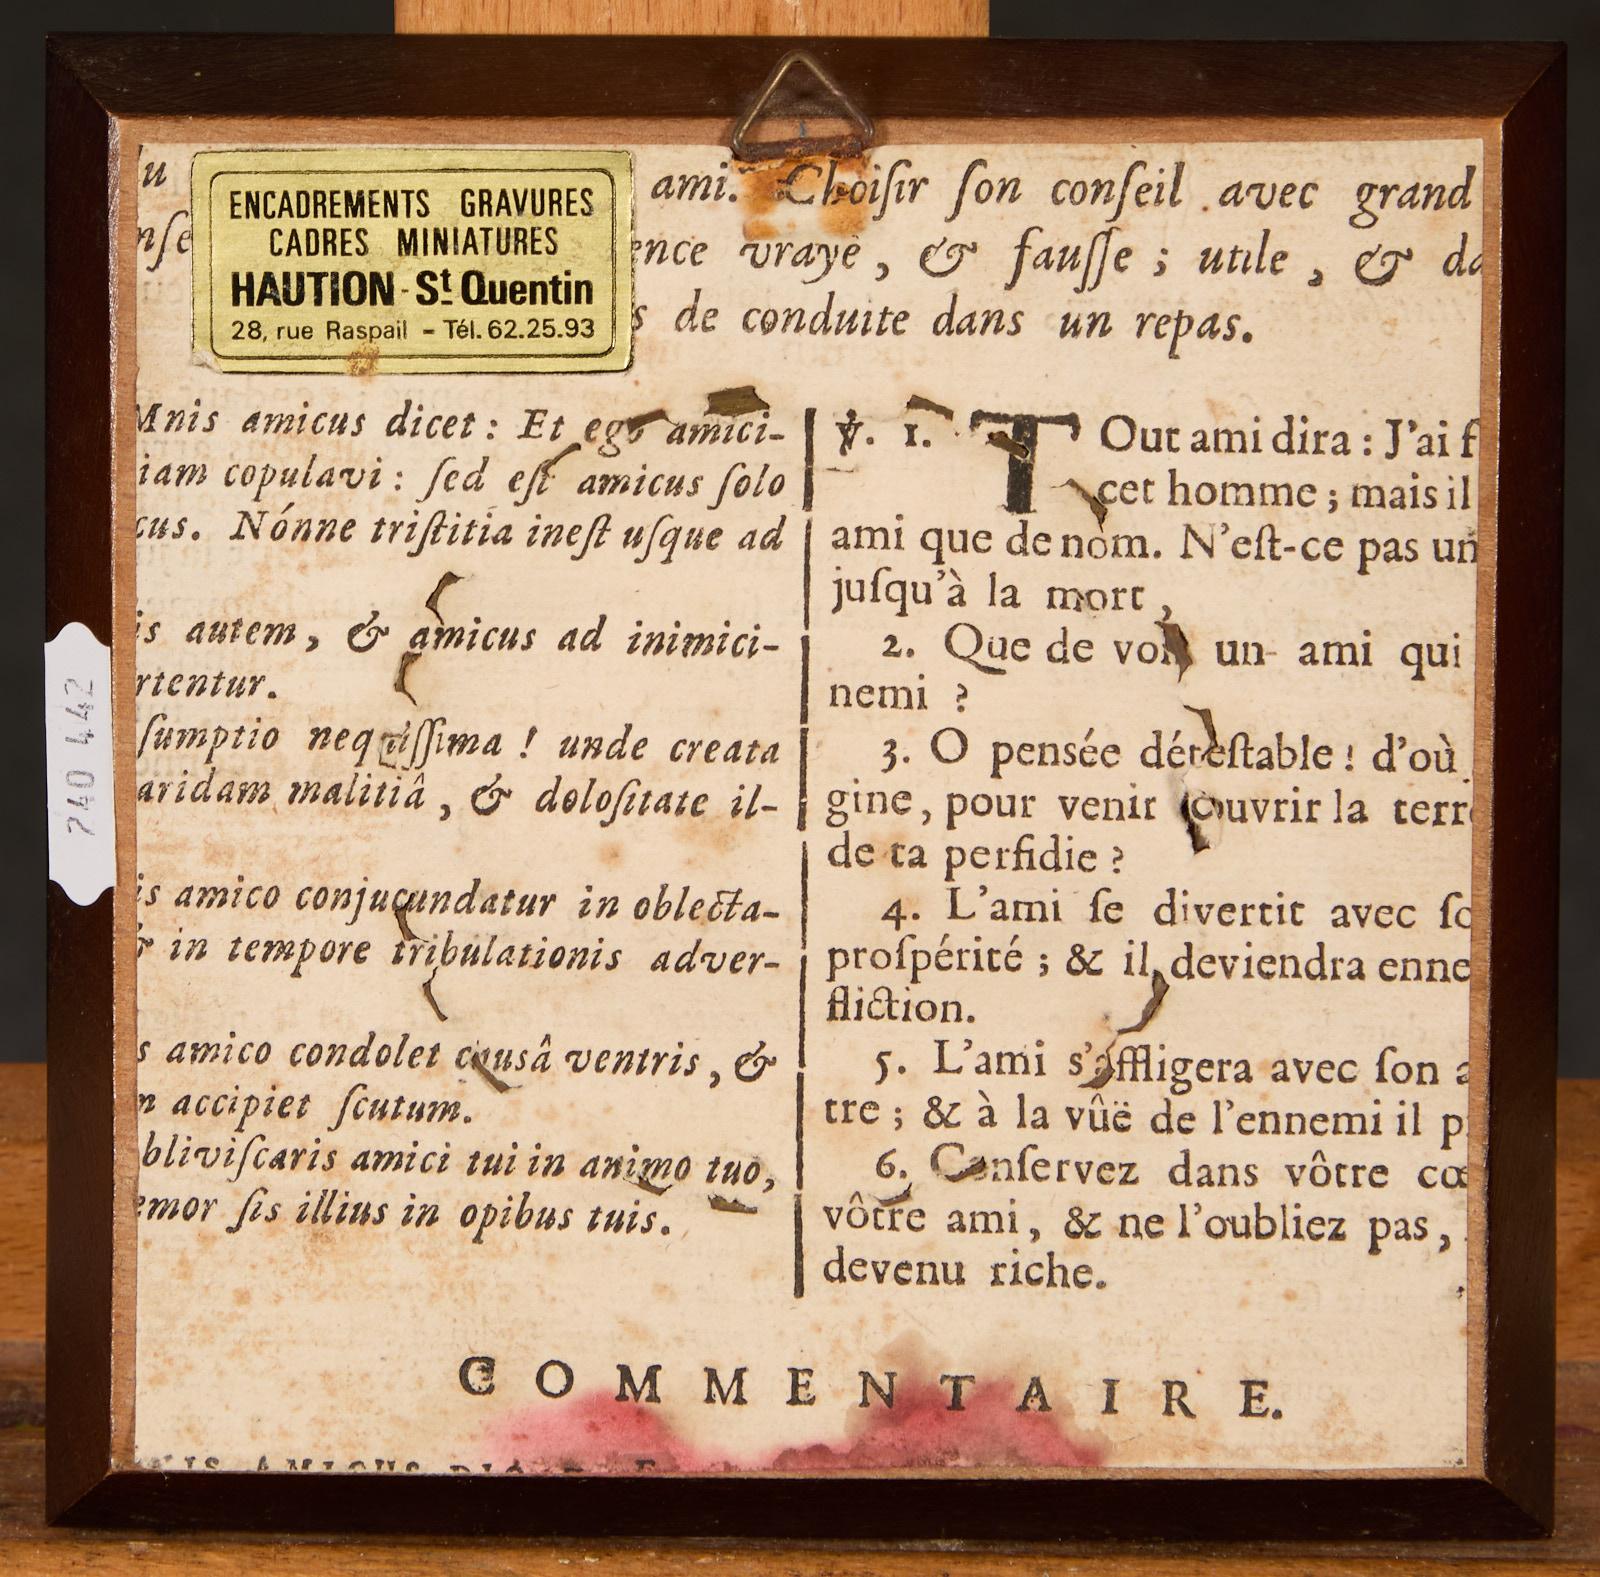 ENCADREMENTS GRAVURES
CADRES MINIATURES
HAUTION - St Quentin
28, rue Raspail - Tél. 62.25.93
ami. Choiſir ſon conſeil avec grand
vraye, & fauſſe ; utile, &
de conduite dans un repas.
Mnis amicus dicet : Et ego amici-
iam copulavi : ſed eſt amicus ſolo
cus. Nónne triſtitia ineſt uſque ad
is autem, & amicus ad inimici-
rtentur.
ſumptio nequiſſima ! unde creata
aridam malitiâ, & doloſitate il-
is amico conjucundatur in oblecta-
& in tempore tribulationis adver-
s amico condolet causâ ventris, &
n accipiet ſcutum.
bliviſcaris amici tui in animo tuo,
emor ſis illius in opibus tuis.
℣. 1. TOut ami dira : J'ai f
cet homme ; mais il
ami que de nom. N'eſt-ce pas un
juſqu'à la mort,
2. Que de voir un ami qui
nemi ?
3. O pensée déteſtable ! d'où
gine, pour venir couvrir la terre
de ta perfidie ?
4. L'ami ſe divertit avec ſo
proſpérité ; & il deviendra enne
fliction.
5. L'ami s'affligera avec ſon a
tre ; & à la vûë de l'ennemi il p
6. Conſervez dans vôtre cœ
vôtre ami, & ne l'oubliez pas,
devenu riche.
COMMENTAIRE.
740 442